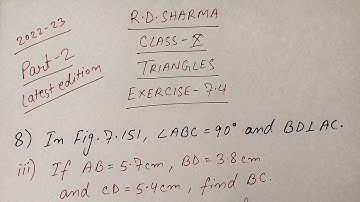 2022-23
Part-2
Latest edition
R.D.SHARMA
CLASS-X
TRIANGLES
EXERCISE-7.4
8) In Fig. 7.151, ∠ABC = 90° and BD⊥AC.
iii) If AB = 5.7cm, BD = 3.8cm
and CD = 5.4cm, find BC.